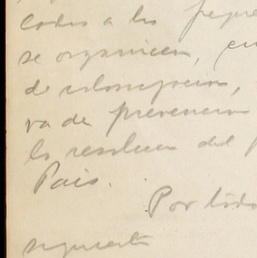 cados a los
se organicen, en
de colonizacion,
va de prevencion
lo resolucion del
Pais.
Por todo
siguiente